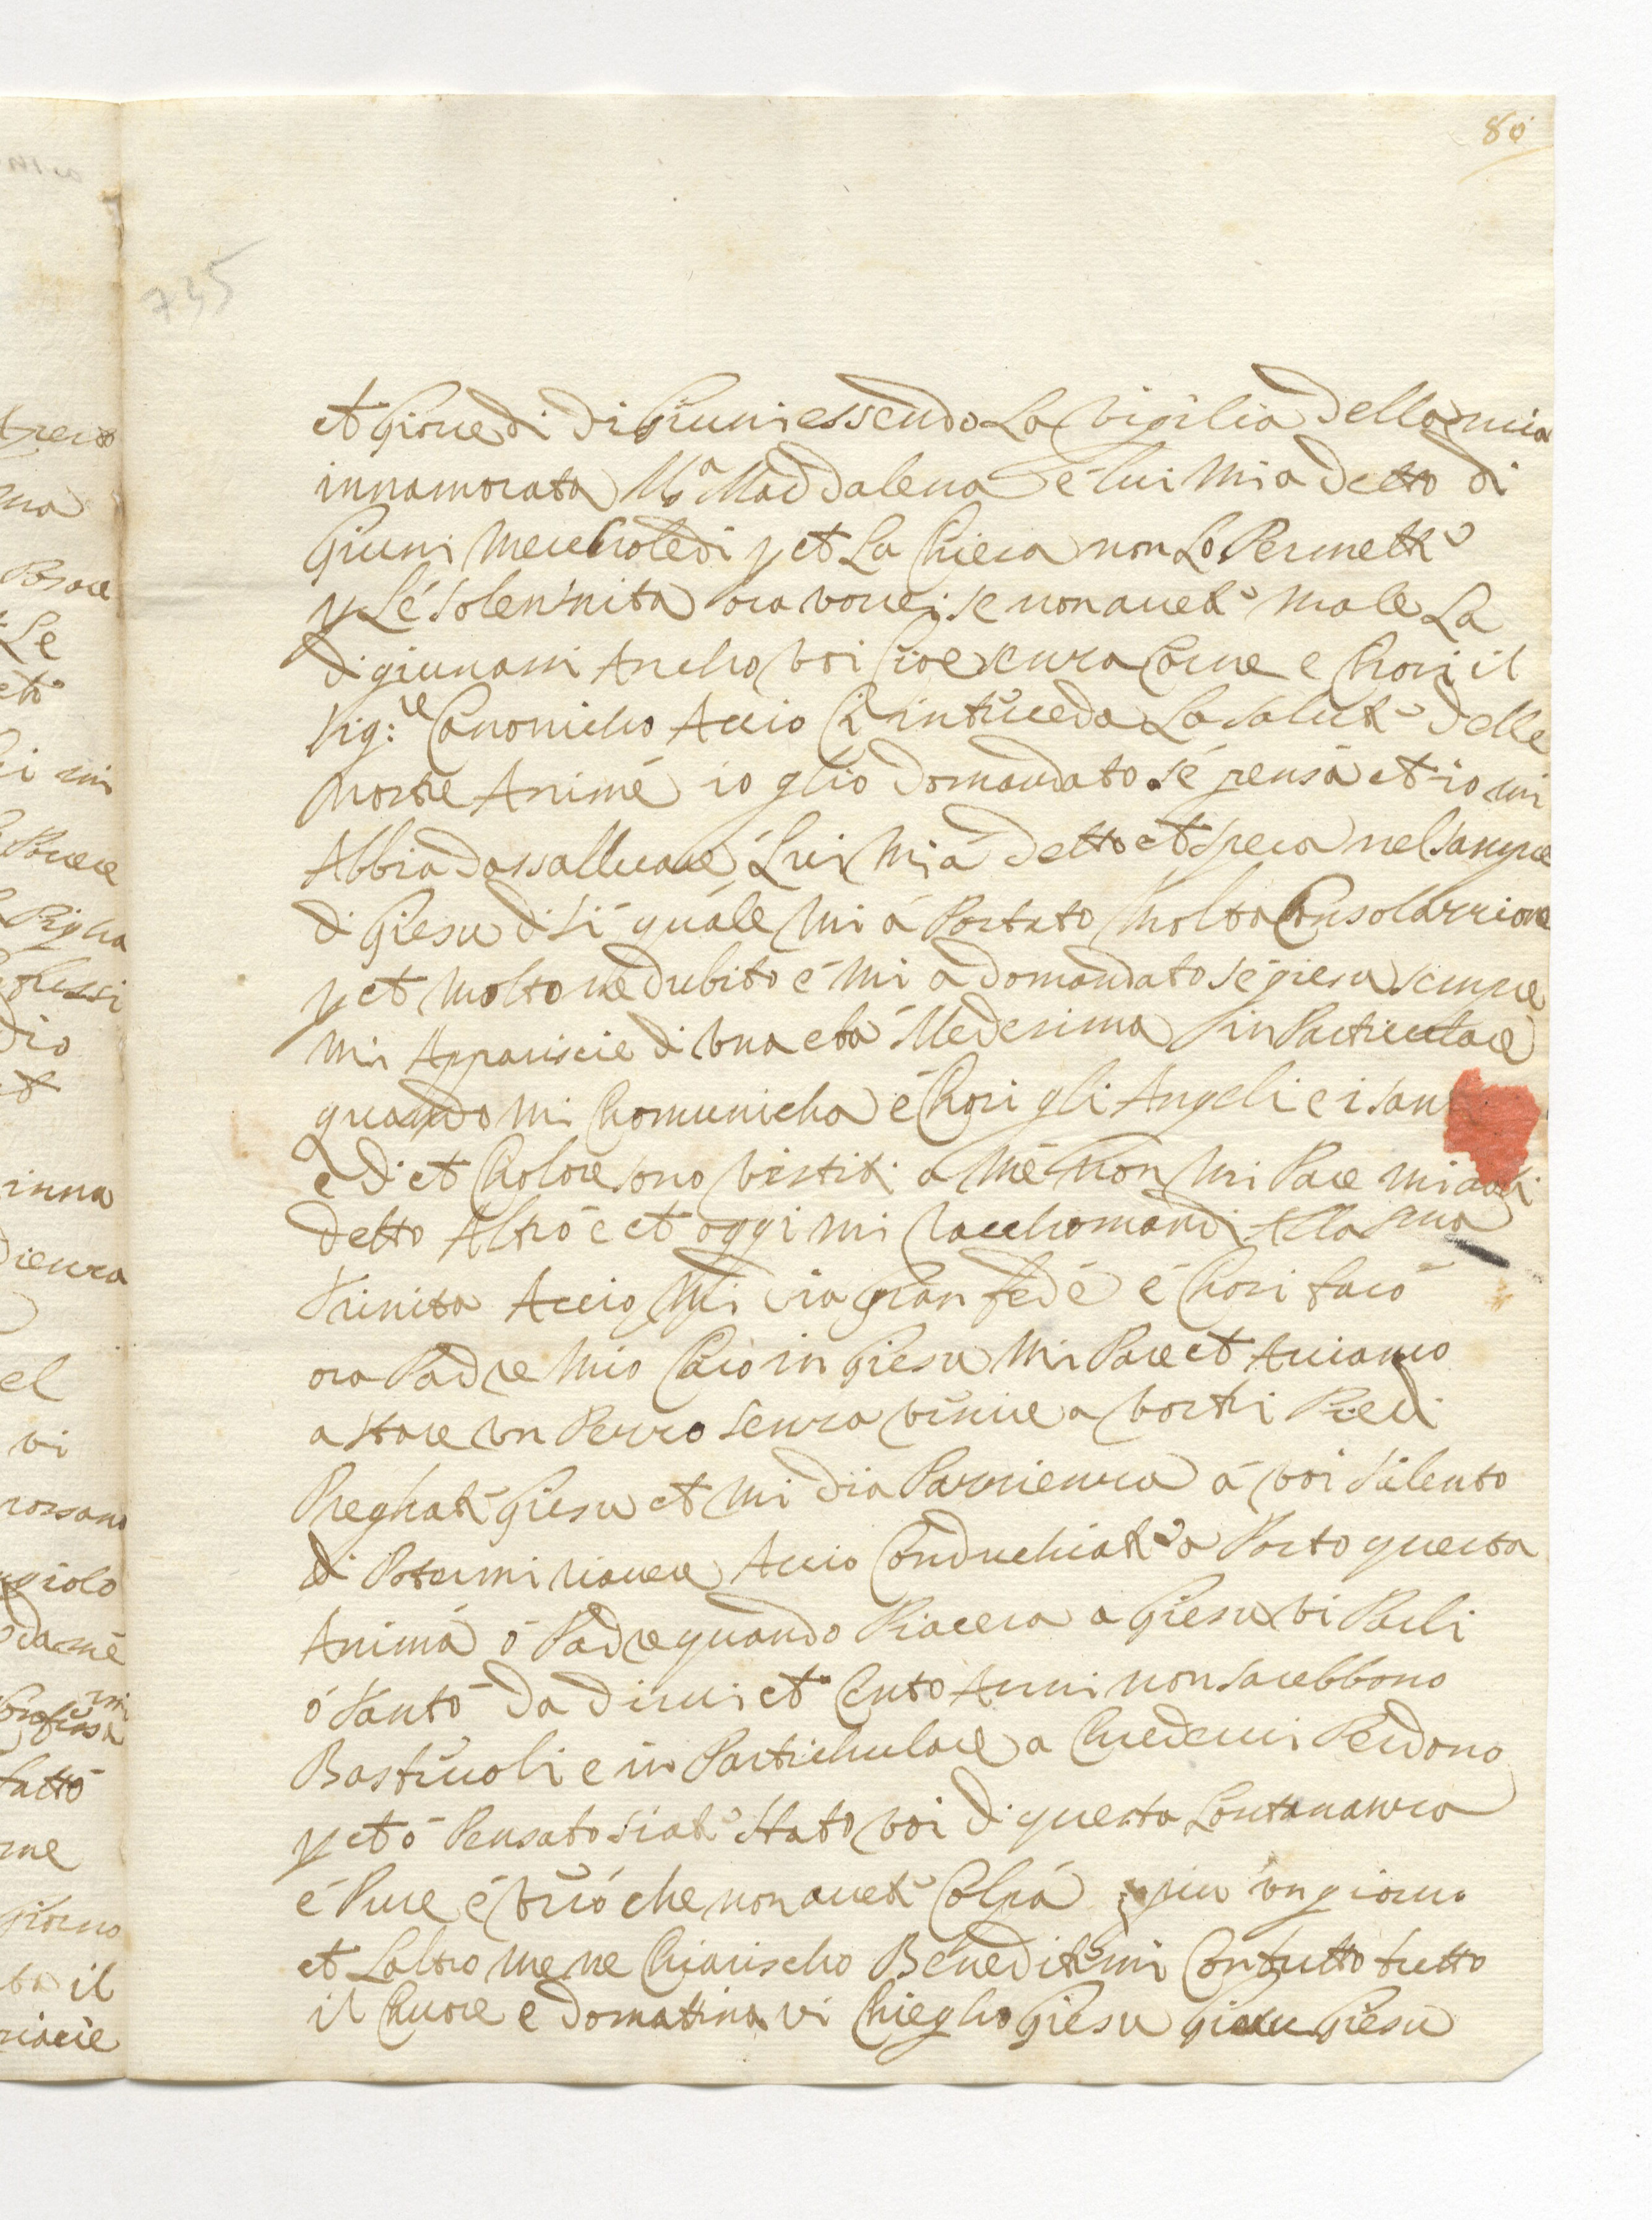 80
735
et Giovedi digiuni essendo La vigilia della mia
innamorata Ms.a Maddalena e lui mi a detto di
Giuni Merchòledi p et La Chiera non Lo Permette
p Lé solennita ora vorrei se non avete male La
digiunassi Ancho voi cioe senza Carne e Chosi il
Sig:re Canonicho Accio Ch interceda La salute delle
Nostre Animé io gli o domandato sé pensa et io mi
Abbia dassalluare Lui Mi a detto et spera nel sangue
di Giesu di Si quále mi á Portato Molta Consolazzione
p et molto ne dubito é mi a domandato sé giesu sempre
mi Appariscie di una eta Medesima in Particulare
quando mi Chomunicha é Chosi gli Angeli e i san
e di et Cholore sono vestiti a mé non mi Pare mi
detto Altro é et oggi mi racchomandi Alla sma
Trinita Accio Mi dia gran fedé é Chosi faro
ora Padre Mio Caro in Giesu Mi Pare et Aviamo
a stare un Pezzo senza venire a vostri Piedi
Preghate Giesu et mi dia Pazzienza á voi talento
di Potermi riavere Accio Conduchiate a Porto questa
Animá ó Padre quando Piacera a Giesu vi Parli
ó tanto da dirvi et Cento Anni non sarebbono
Bastevoli e in Partichulare a Chiedervi Perdono
p et ó Pensato siate Stato voi di questa Lontananza
é Pure é vero che non avete Colpá più un giorno
et Laltro me ne Chiarischo Beneditemi Con tutto tutto
il Cuore e domattina vi Chiegho Giesu Giesu Giesu